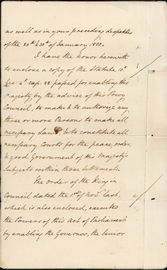 as well as in your preceding despatches
of the 20th & 21st of January 1861.
I have the honor herewith
to enclose a copy of the Statute,
cap. passed for enabling His
Majesty by the advice of His Privy
Council, to make & to authorize any
three or more Persons to make all
necessary Laws & to constitute all
necessary Courts for the peace, order,
& good Government of His Majesty's
Subjects within those settlements.
The order of the King in
Council dated the 1st of Novr last,
which is also enclosed, executes
the Powers of this Act of Parliament
by enabling the Governor, the Senior